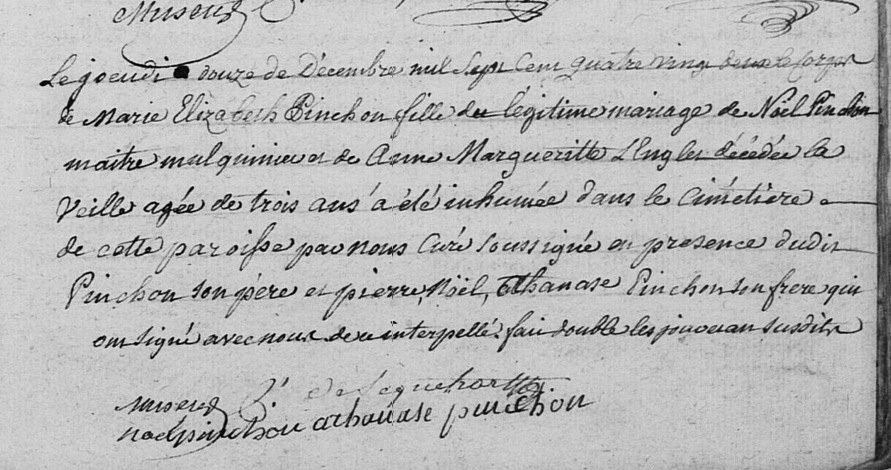 Museux
Le joeudi douze de Décembre mil Sept Cent quatre vingt deux le Corps
de Marie Elizabeth Pinchon fille de légitime mariage de Noël Pinchon
maitre mulquinier et de Anne Margueritte L'Englet décédée la
Veille agée de trois ans a été inhumée dans le Cimétiere
de cette paroisse par nous Curé soussigné en presence dudit
Pinchon son pére et pierre, Noël, Athanase Pinchon son frere qui
ont signé avec nous de ce interpellé. fait double les jour et an susdits
de Sequehart
noel pinchon athanase pinchon